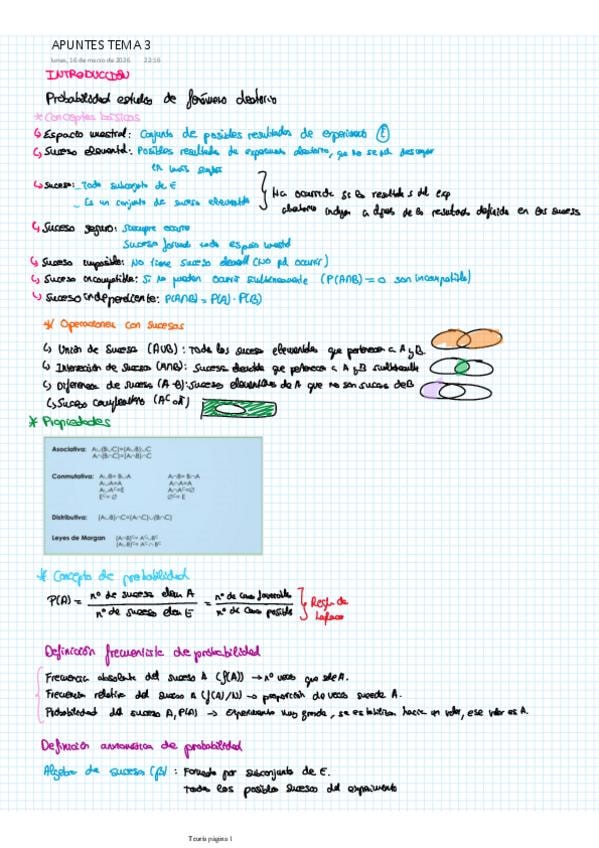 APUNTES TEMA 3
lunes, 16 de marzo de 2026 22:16
INTRODUCCIÓN
Probabilidad estudia de fenómeno aleatorio
* Conceptos básicos
↳ Espacio muestral: Conjunto de posibles resultados de experimento (E)
↳ Suceso elemental: Posibles resultados de experimento aleatorio, que no se pd descomponer
en más simples
↳ Suceso: - Todo subconjunto de E
- Es un conjunto de sucesos elementales
Ha ocurrido si los resultados del exp
aleatorio incluyen a de los resultados definido en los sucesos
↳ Suceso seguro: Siempre ocurre
Suceso formado todo espacio muestral
↳ Suceso imposible: No tiene suceso elemental (No pd ocurrir)
↳ Suceso incompatible: Si no pueden ocurrir simultáneamente (P(A∩B) = 0 son incompatibles)
↳ Suceso independiente: P(A∩B) = P(A) · P(B)
* Operaciones con sucesos
↳ Unión de Sucesos (A∪B): Todos los sucesos elementales que pertenecen a A y B.
↳ Intersección de sucesos (A∩B): Sucesos elementales que pertenecen a A y B simultáneamente
↳ Diferencia de sucesos (A-B): Sucesos elementales de A que no son sucesos de B
↳ Suceso complementario (Aᶜ o Ā)
* Propiedades
Asociativa: A∪(B∪C)=(A∪B)∪C
A∩(B∩C)=(A∩B)∩C
Conmutativa: A∪B= B∪A A∩B= B∩A
A∪A=A A∩A=A
A∪Aᶜ=E A∩Aᶜ=∅
Eᶜ= ∅ ∅ᶜ= E
Distributiva: (A∪B)∩C=(A∩C)∪(B∩C)
Leyes de Morgan (A∩B)ᶜ= Aᶜ∪Bᶜ
(A∪B)ᶜ= Aᶜ∩Bᶜ
* Concepto de probabilidad
P(A) = nº de sucesos elem A / nº de sucesos elem E = nº de casos favorables / nº de casos posibles
Regla de
Laplace
Definición frecuentista de probabilidad
Frecuencia absoluta del suceso A (f(A)) → nº veces que sale A.
Frecuencia relativa del suceso A (f(A)/N) → proporción de veces sucede A.
Probabilidad del suceso A, P(A) → Experimento muy grande, se estabiliza hacia un valor, ese valor es A.
Definición axiomática de probabilidad
Álgebra de sucesos (β): Formado por subconjunto de E.
Todos los posibles sucesos del experimento
Teoría página 1